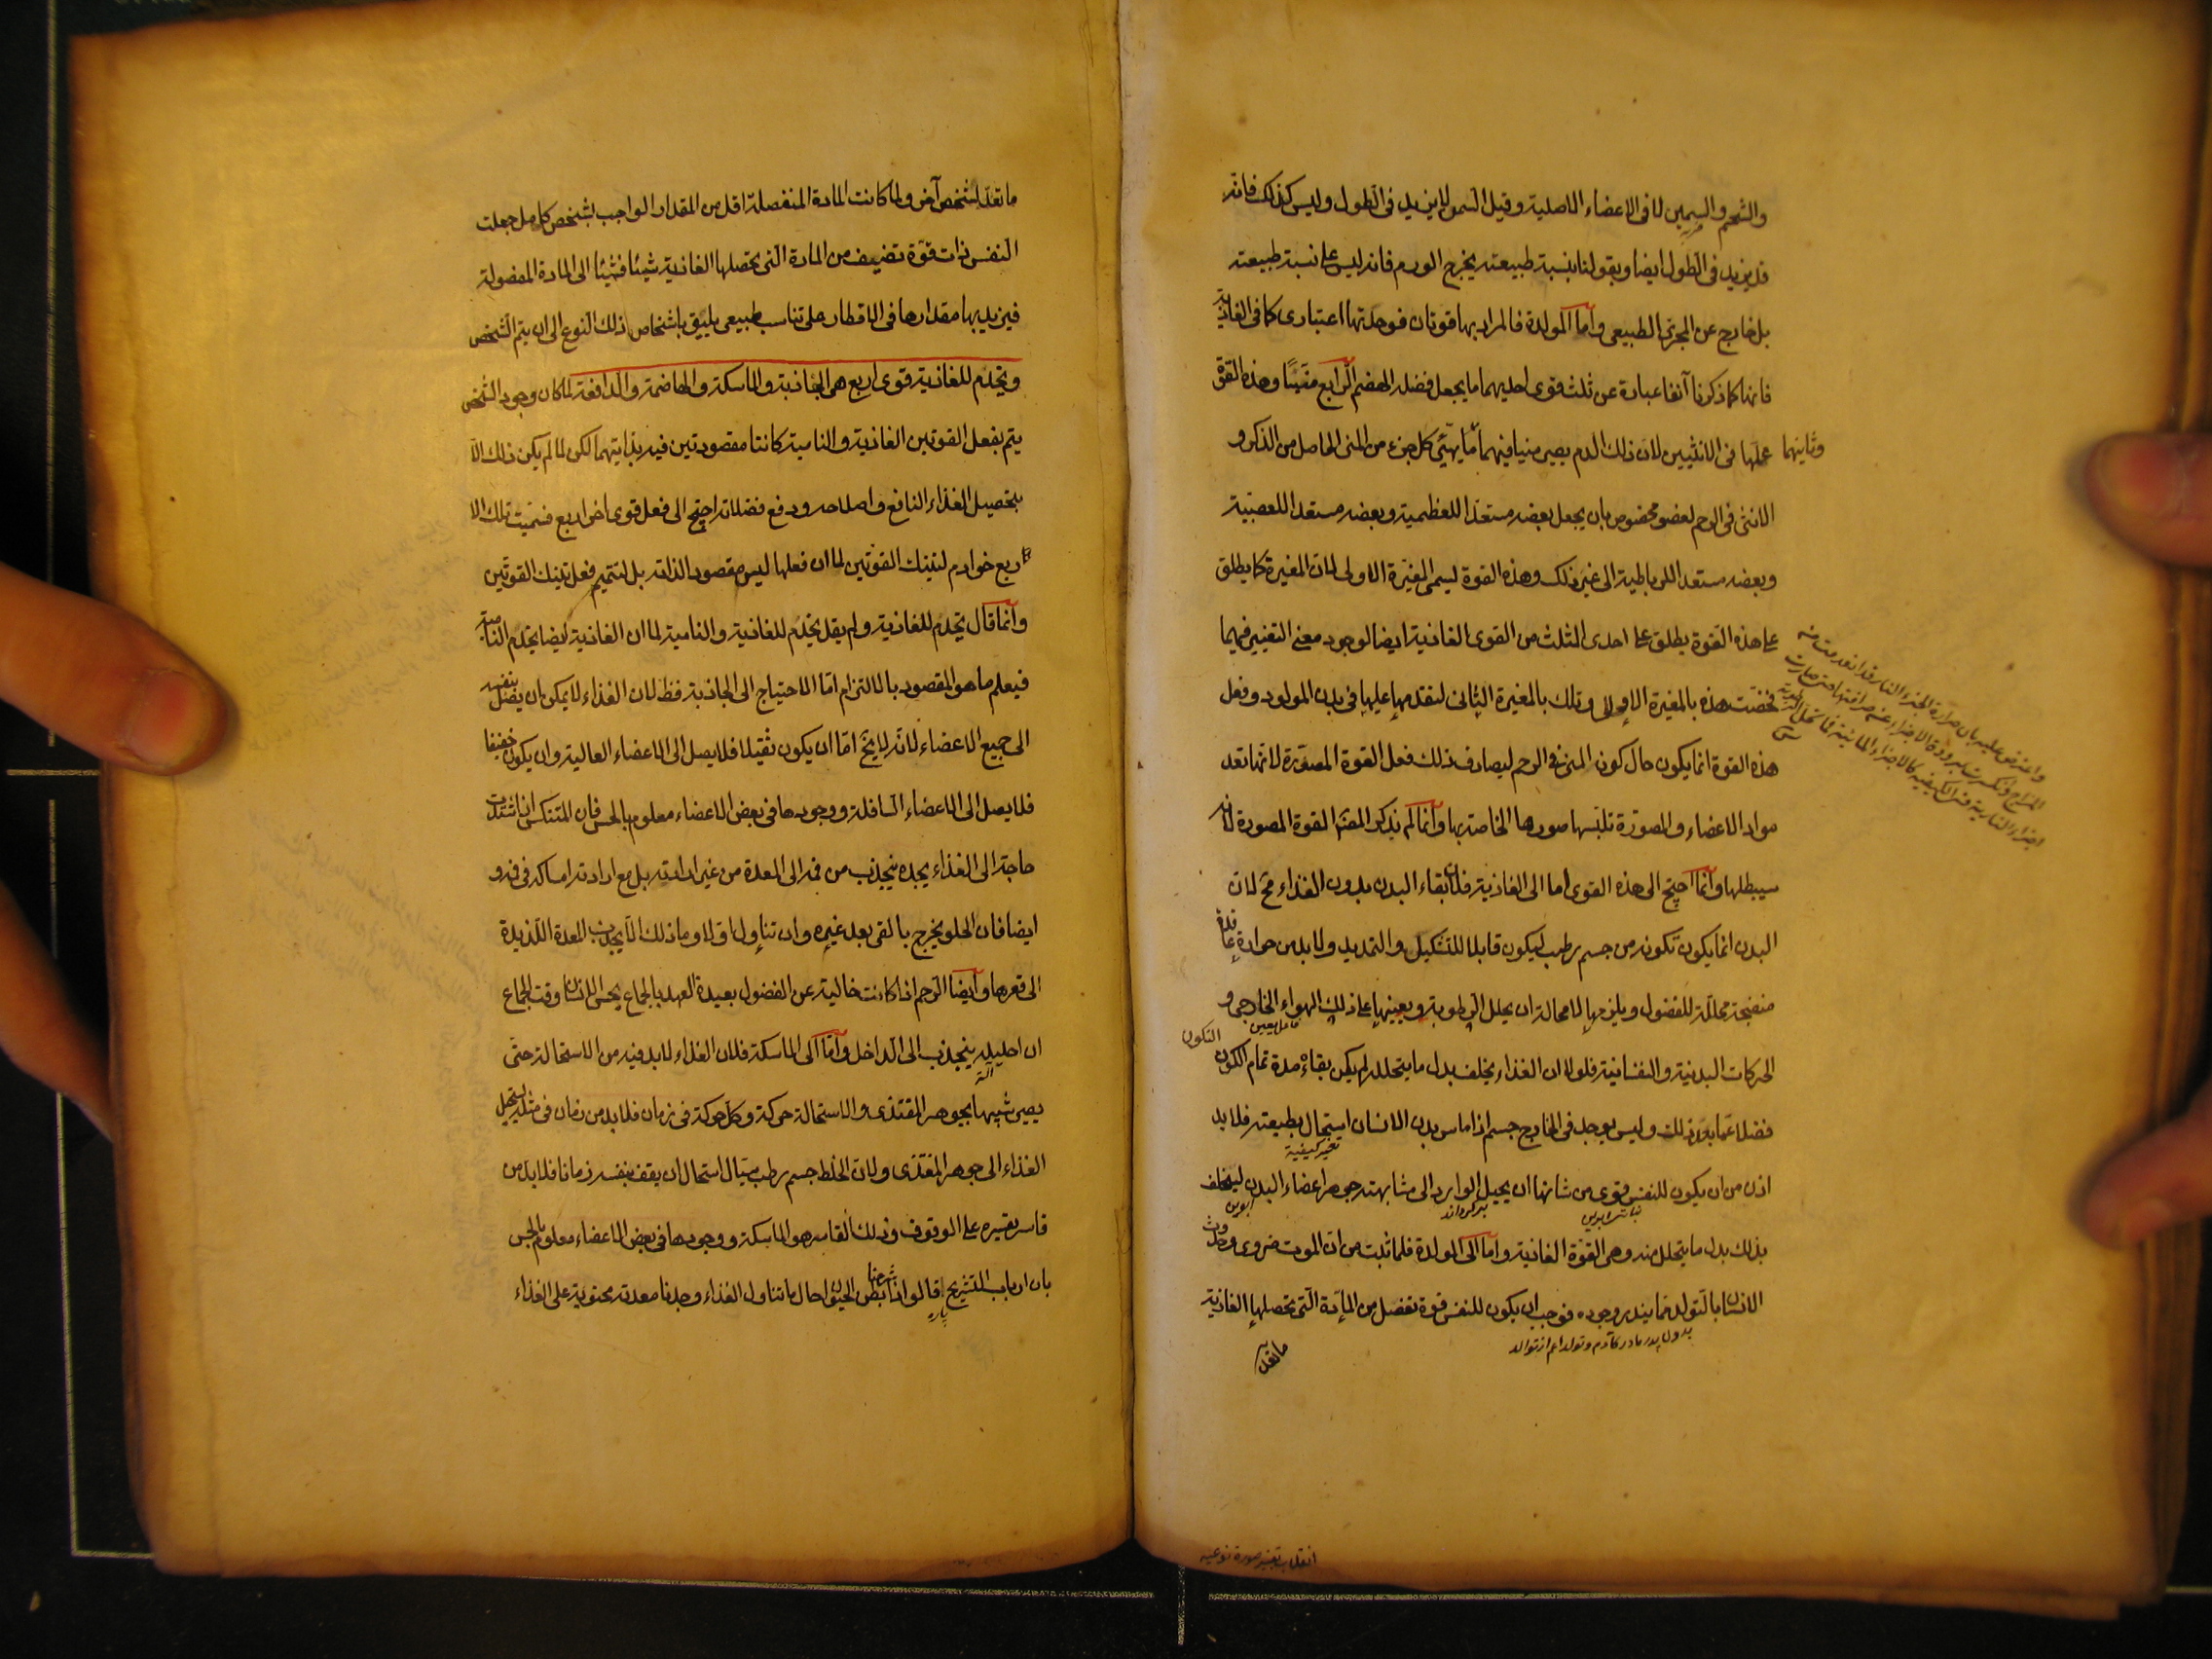 والشحم والسمين لا فى الاعضاء الاصلية وقيل السمن لا يزيد فى الطول وليس كذلك فانه
قد يزيد فى الطول ايضا وبقولنا بنسبة طبيعته يخرج الورم فانه ليس على نسبة طبيعته
بل خارج عن المجرى الطبيعى وامّا المولدة فالمراد بها قوتان فوحدتها اعتبارى كما فى الغاذية
فانها كما ذكرنا آنفا عبارة عن ثلث قوى احديهما ما يجعل فضلة الهضم الرابع منيّا وهذه القوة
عملها فى الانثيين لان ذلك الدم يصير منيا فيهما ما يهيّئ كل جزء من المنى الحاصل من الذكر و
وثانيتهما
الانثى فى الرحم لعضو مخصوص بان يجعل بعضه مستعدا للعظمية وبعضه مستعدا للعصبية
وبعضه مستعدا للرباطية الى غير ذلك وهذه القوة تسمى المغيّرة الاولى لان المغيرة كما يطلق
على هذه القوة يطلق على احدى الثلث من القوى الغاذية ايضا لوجود معنى التغيير فيهما
فخصّت هذه بالمغيرة الاولى وتلك بالمغيرة الثانى لتقدمها عليها فى بدن المولود وفعل
هذه القوة انما يكون حال كون المنى فى الرحم ليصادف ذلك فعل القوة المصوّرة لانها تعد
مواد الاعضاء والمصوّرة تلبسها صورها الخاصة بها وانما لم يذكر المصّ القوة المصورة لانه
سيبطلها وانّما احتيج الى هذه القوى اما الى الغاذية فلان بقاء البدن بدون الغذاء مح لان
البدن انما يكون تكونه من جسم رطب ليكون قابلا للتشكيل والتمديد ولا بد من حرارة عاقدة
منضجة محللة للفضول ويلزمها لا محالة ان يحلل الرطوبة ويعينها على ذلك الهواء الخارجى و
الحركات البدنية والنفسانية فلولا ان الغذاء يخلف بدل ما يتحلل لم يكن بقاءه مدة تمام الكون
التكون
فضلا عمّا بعد ذلك وليس يوجد فى الخارج جسم اذا ماس بدن الانسان استحال بطبيعته فلا بد
تغير كيفية
اذن من ان يكون للنفس قوى من شانها ان يحيل الوارد الى مشابهته جوهر اعضاء البدن ليخلف
بذلك بدل ما يتحلل منه وهى القوة الغاذية وامّا الى المولدة فلما ثبت من ان الموت ضرورى وحدوث
الانسان بالتولد مما يندر وجوده فوجب ان يكون للنفس قوة تفضل من المادّة التى تحصلها الغاذية
بدون پدر مادر كآدم وتولد اعم از توالد
ما تعدّ
انقلاب تغير صورة نوعيه
ما تعدّ لشخص آخر ولما كانت المادة المنفصلة اقل من المقدار الواجب لشخص كامل جعلت
النفس ذات قوّة تضيف من المادة التى تحصلها الغاذية شيئا فشيئا الى المادة المفضولة
فيزيد بها مقدارها فى الاقطار على تناسب طبيعى يليق باشخاص ذلك النوع الى ان يتم الشخص
ويخدم للغاذية قوى اربع هى الجاذبة والماسكة والهاضمة والدافعة لما كان وجود الشخص
يتم بفعل القوتين الغاذية والنامية كانتا مقصودتين فيه بذاتيهما لكن لما لم يكن ذلك الّا
بتحصيل الغذاء النافع واصلاحه ودفع فضلاته احتيج الى فعل قوى اخر اربع فسمّيت تلك الا
ربع خوادم لتينك القوتين لما ان فعلها ليس مقصودا لذاته بل لتتميم فعل تينك القوتين
وانّما قال يخدم للغاذية ولم يقل يخدم للغاذية والنامية لما ان الغاذية ايضا يخدم النامية
فيعلم ما هو المقصود بالالتزام امّا الاحتياج الى الجاذبة فظ لان الغذاء لا يمكن ان يصل بنفسه
الى جميع الاعضاء لانه لا يخ امّا ان يكون ثقيلا فلا يصل الى الاعضاء العالية وان يكون خفيفا
فلا يصل الى الاعضاء السافلة ووجودها فى بعض الاعضاء معلوم بالحس فان المتنكس اذا اشتدت
حاجته الى الغذاء يجده ينجذب من فمه الى المعدة من غير ارادته بل مع ارادته امساكه فى فمه و
ايضا فان الحلو يخرج بالقى بعد غيره وان تناول اوّلا وما ذلك الّا يجذب المعدة اللذيذة
الى قعرها وايضا الرحم اذا كانت خالية عن الفضول بعيدة العهد بالجماع يحسّ الانسان وقت الجماع
ان احليله ينجذب الى الداخل وامّا الى الماسكة فلان الغذاء لا بد فيه من الاستحالة حتى
يصير شبيها بجوهر المغتذى والاستحالة حركة وكل حركة فى زمان فلا بد من زمان فى مثله يستحيل
الغذاء الى جوهر المغتذى ولان الخلط جسم رطب سيّال استحال ان يقف بنفسه زمانا فلا بد من
قاسر يقسره على الوقوف وذلك القاسر هو الماسكة ووجودها فى بعض الاعضاء معلوم بالحس
بان ارباب التشريح قالوا اذا شرحنا بطن الحيوان حال ما تناول الغذاء وجدنا معدته محتوية على الغذاء